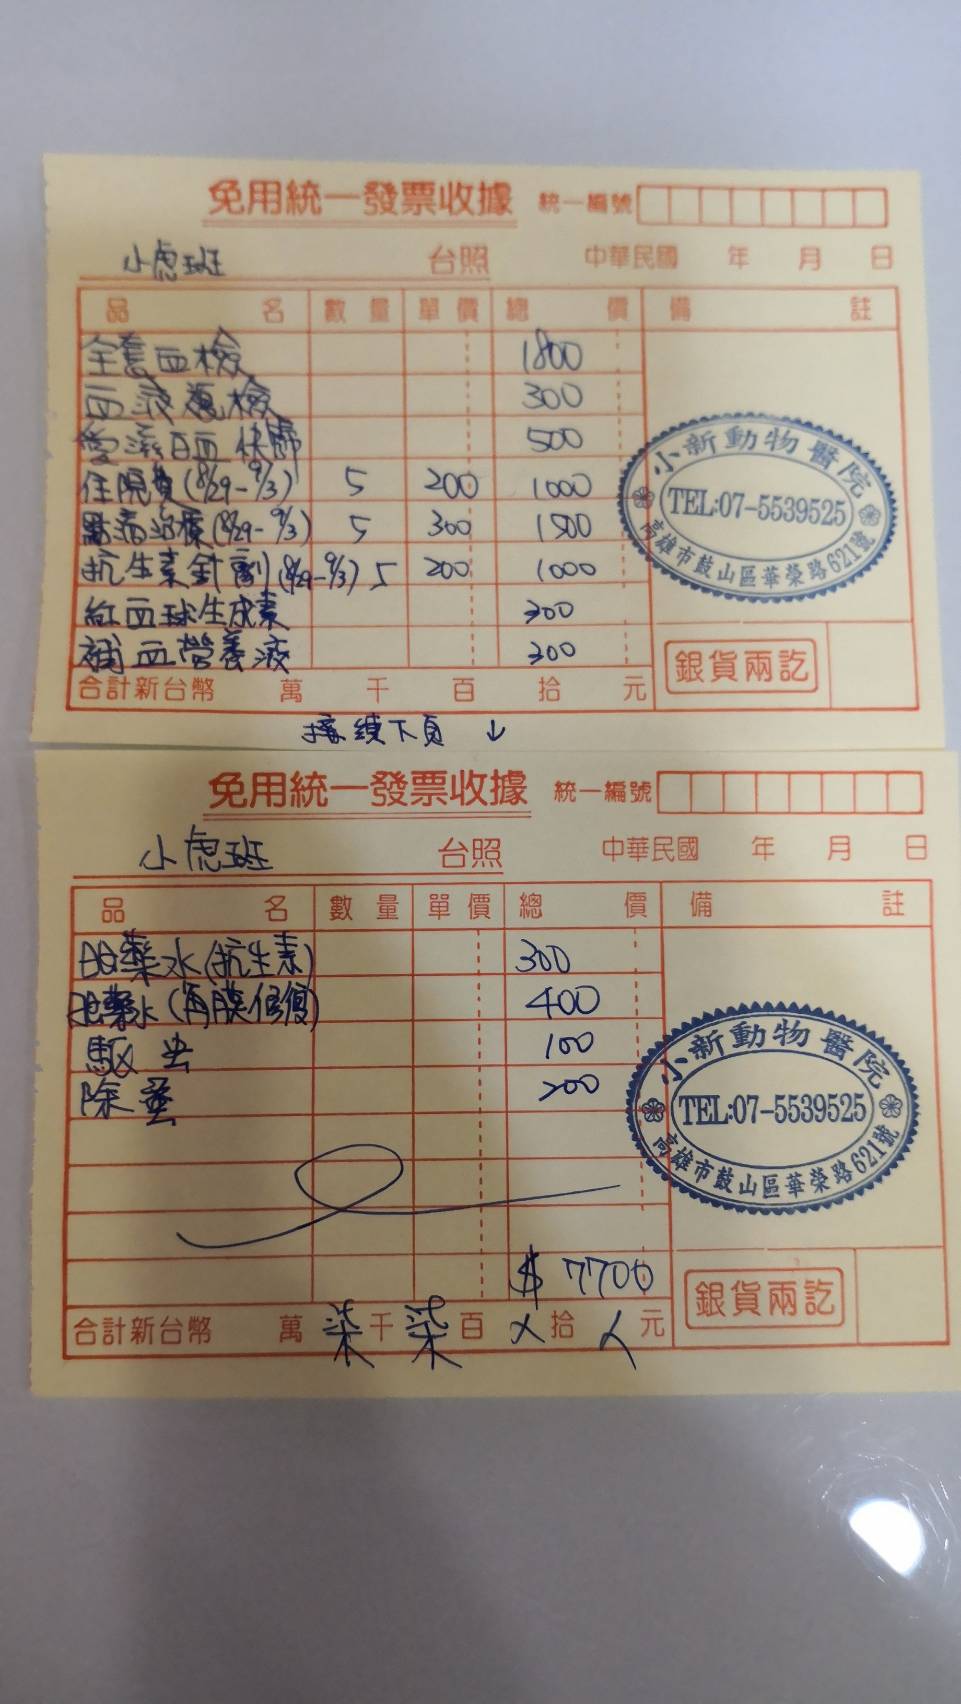 免用統一發票收據 統一編號
小虎班 台照 中華民國 年 月 日
品名 數量 單價 總價 備註
全套血檢 1800
血液 檢 300
愛滋白血快篩 500
住院費(8/29-9/3) 5 200 1000
點滴治療(8/29-9/3) 5 300 1500
抗生素針劑(8/29-9/3) 5 200 1000
紅血球生成素 300
補血營養液 300
小新動物醫院
TEL:07-5539525
高雄市鼓山區華榮路621號
銀貨兩訖
合計新台幣 萬 千 百 拾 元
接續下頁 ↓
免用統一發票收據 統一編號
小虎班 台照 中華民國 年 月 日
品名 數量 單價 總價 備註
眼藥水(抗生素) 300
眼藥水(角膜修復) 400
驅虫 100
除蚤 200
小新動物醫院
TEL:07-5539525
高雄市鼓山區華榮路621號
$ 7700
銀貨兩訖
合計新台幣 萬 柒 千 柒 百 拾 元